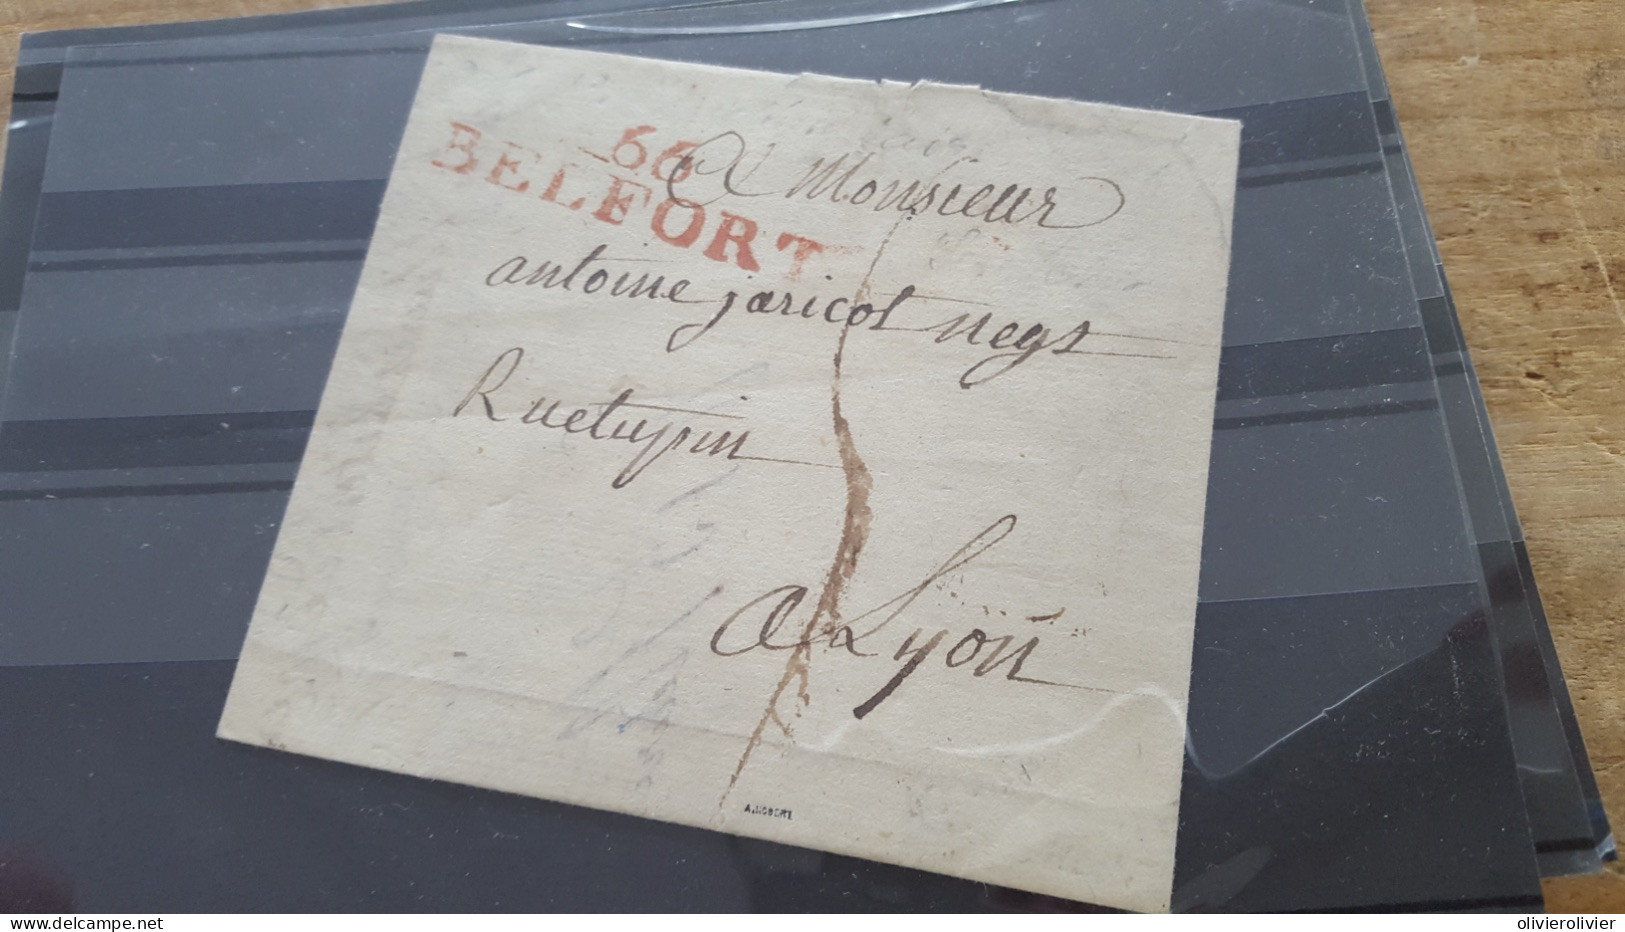 66
BELFORT
A Monsieur
antoine jaricot negt
Rue tupin
a Lyon
A.ROBERT
www.delcampe.net
olivierolivier